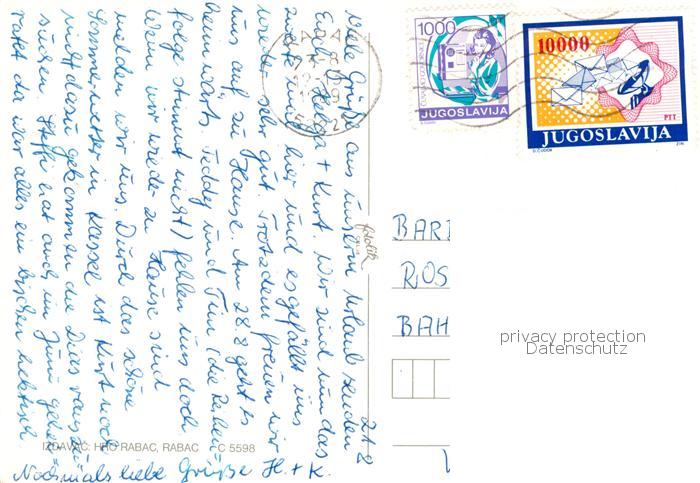 21.8
Viele Grüße aus unserm Urlaub senden
Euch Helga + Kurt. Wir sind nun das
zweite mal hier und es gefällt uns
wieder sehr gut. Trotzdem freuen wir
uns auf zu Hause. Am 28.8 geht's
heimwärts. Teddy und Timi (die Reihen-
folge stimmt nicht) fehlen uns doch
Wenn wir wieder zu Hause sind
melden wir uns. Durch das schöne
Sommerwetter in Kassel ist Kurt noch
nicht dazu gekommen die Dias
Steffi hat auch im Juni
da war alles ein bischen hektisch
Nochmals liebe Grüße H. + K.
fotolik
IZDAVAČ: HRO RABAC, RABAC C 5598
1000
PTT
JUGOSLAVIJA
10000
PTT
JUGOSLAVIJA
BAR
ROS
BAH
privacy protection
Datenschutz